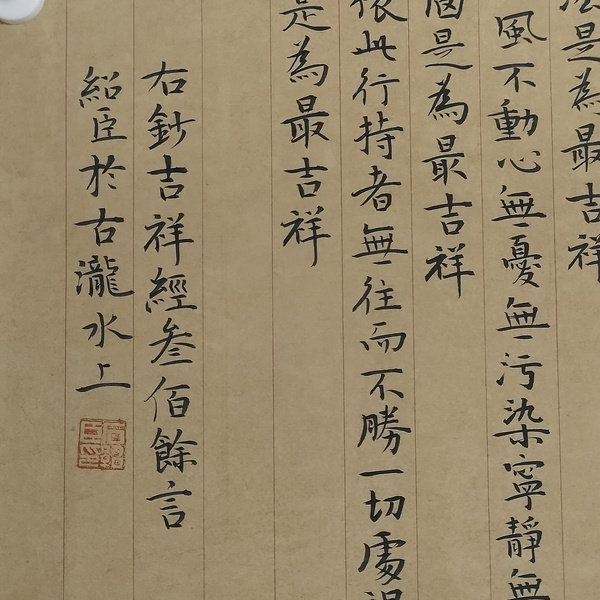 是為最吉祥
風不動心無憂無污染寧靜無
煩是為最吉祥
依此行持者無往而不勝一切處得
是為最吉祥
右鈔吉祥經叁佰餘言
紹臣於古瀧水上